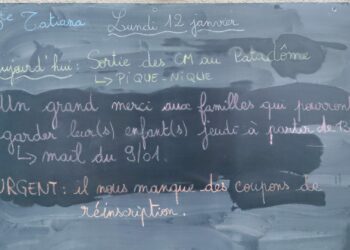 Tatiana Lundi 12 janvier
ujourd'hui : Sortie des CM au Patadôme
↳ PIQUE-NIQUE
Un grand merci aux familles qui pourron
garder leur(s) enfant(s) jeudi à partir de
↳ mail du 9/01.
URGENT : il nous manque des coupons de
réinscription.